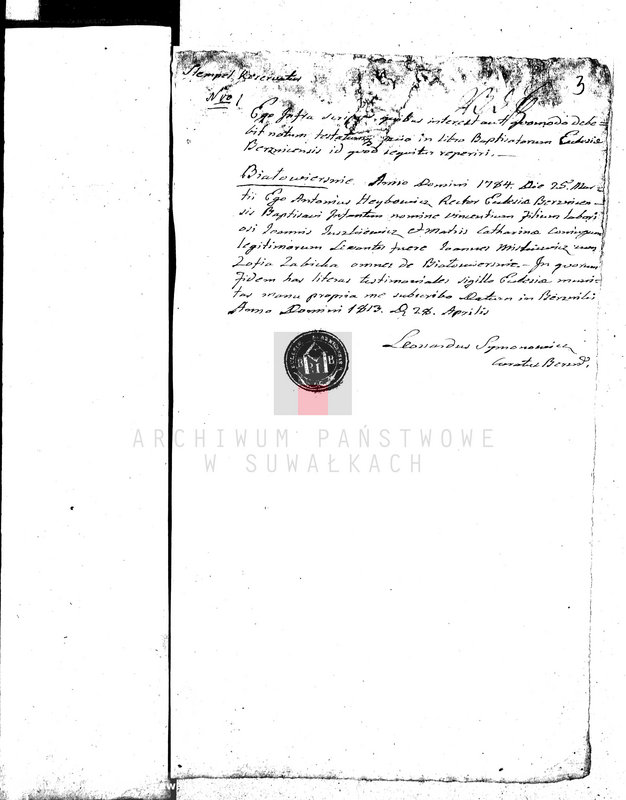 3
Stempel. Reservatus
Nro 1
Ego Infra scriptus quibus interest aut quomodo debe-
bit notum testatumq facio in libro Baptisatorum Ecclesiæ
Berznicensis id quod sequitur reperiri. —
Białowiersnie. Anno Domini 1784. Die 25. Mar-
tii Ego Antonius Heybowicz Rector Ecclesiæ Berznicen-
sis Baptisavi Infantem nomine Vincentium filium labori
osi Joannis Juszkiewicz et Matris Catharina Coniugum
legitimorum Levantes fuere Joannes Miskiewicz cum
Zofia Zabicka omnes de Białowiersnie. — In quorum
fidem has literas testimoniales sigillo Ecclesiæ muni-
tas manu propria me subscribo Datum in Berzniki
Anno Domini 1813. D. 28. Aprilis
Leonardus Symonowicz
Curatus Bern.
ARCHIWUM PAŃSTWOWE
W SUWAŁKACH